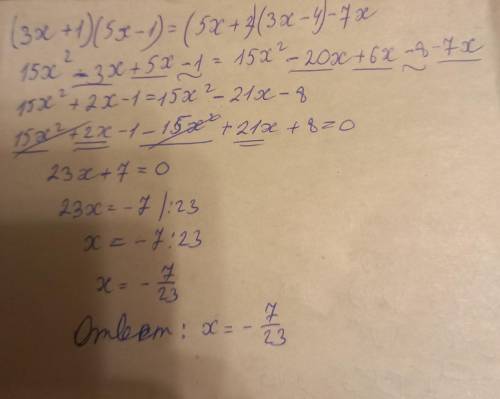 (3x+1)(5x-1)=(5x+2)(3x-4)-7x
15x²-3x+5x-1=15x²-20x+6x-8-7x
15x²+2x-1=15x²-21x-8
15x²+2x-1-15x²+21x+8=0
23x+7=0
23x=-7 |:23
x=-7:23
x=-7/23
Ответ: x=-7/23